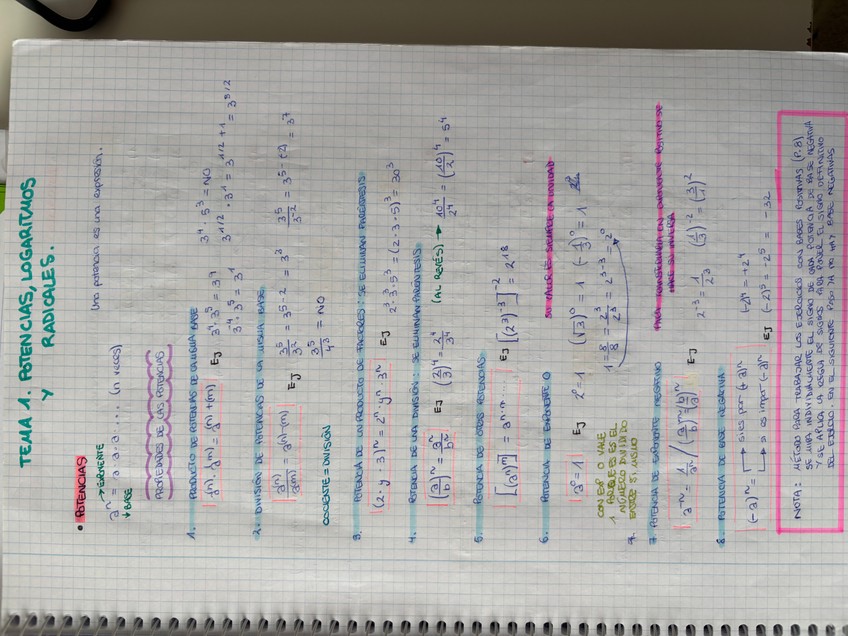 TEMA 1. POTENCIAS, LOGARITMOS
Y RADICALES.
• POTENCIAS
Una potencia es una expresión.
→ EXPONENTE
aⁿ = a·a·a·a.... (n veces)
↓ BASE
PROPIEDADES DE LAS POTENCIAS
1. PRODUCTO DE POTENCIAS DE LA MISMA BASE
EJ 3⁴·3³ = 3⁷ 3⁴·5³ = NO
3^1/2·3¹ = 3^1/2 + 1 = 3^3/2
2. DIVISIÓN DE POTENCIAS DE LA MISMA BASE
EJ 3⁵/3² = 3⁵⁻² = 3³ 3⁵/3⁻² = 3^5-(-2) = 3⁷
3⁵/4³ = NO
COCIENTE = DIVISIÓN
3. POTENCIA DE UN PRODUCTO DE FACTORES: SE ELIMINAN PARÉNTESIS
(2·y·3)ⁿ = 2ⁿ·yⁿ·3ⁿ
EJ 2³·3³·5³ = (2·3·5)³ = 30³
4. POTENCIA DE UNA DIVISIÓN: SE ELIMINAN PARÉNTESIS
(a/b)ⁿ = aⁿ/bⁿ EJ (2/3)⁴ = 2⁴/3⁴ (AL REVÉS) → 10⁴/2⁴ = (10/2)⁴ = 5⁴
5. POTENCIA DE OTRAS POTENCIAS
EJ [(2³)⁻³]⁻² = 2¹⁸
6. POTENCIA DE EXPONENTE 0 SU VALOR ES SIEMPRE LA UNIDAD
a⁰ = 1 EJ 2⁰ = 1 (√3)⁰ = 1 (-1/3)⁰ = 1
CON EXP 0 VALE
1 PORQUE ES EL
NÚMERO DIVIDIDO
ENTRE SI MISMO
1 = 8/8 = 2³/2³ = 2³⁻³ = 2⁰
7. POTENCIA DE EXPONENTE NEGATIVO PARA TRANSFORMARLA EN EXPONENTE POSITIVO SE
HACE SU INVERSA
a⁻ⁿ = 1/aⁿ / (a/b)⁻ⁿ = (b/a)ⁿ EJ 2⁻³ = 1/2³ (1/3)⁻² = (3/1)²
8. POTENCIA DE BASE NEGATIVA
(-a)ⁿ = → si es par (+a)ⁿ
→ si es impar (-a)ⁿ
EJ (-2)⁴ = +2⁴
(-2)⁵ = -2⁵ = -32
NOTA: MÉTODO PARA TRABAJAR LOS EJERCICIOS CON BASES NEGATIVAS (P.8)
SE MIRA INDIVIDUALMENTE EL SIGNO DE CADA POTENCIA DE BASE NEGATIVA
Y SE APLICA LA REGLA DE SIGNOS PARA PONER EL SIGNO DEFINITIVO
DEL EJERCICIO. EN EL SIGUIENTE PASO YA NO HAY BASE NEGATIVAS